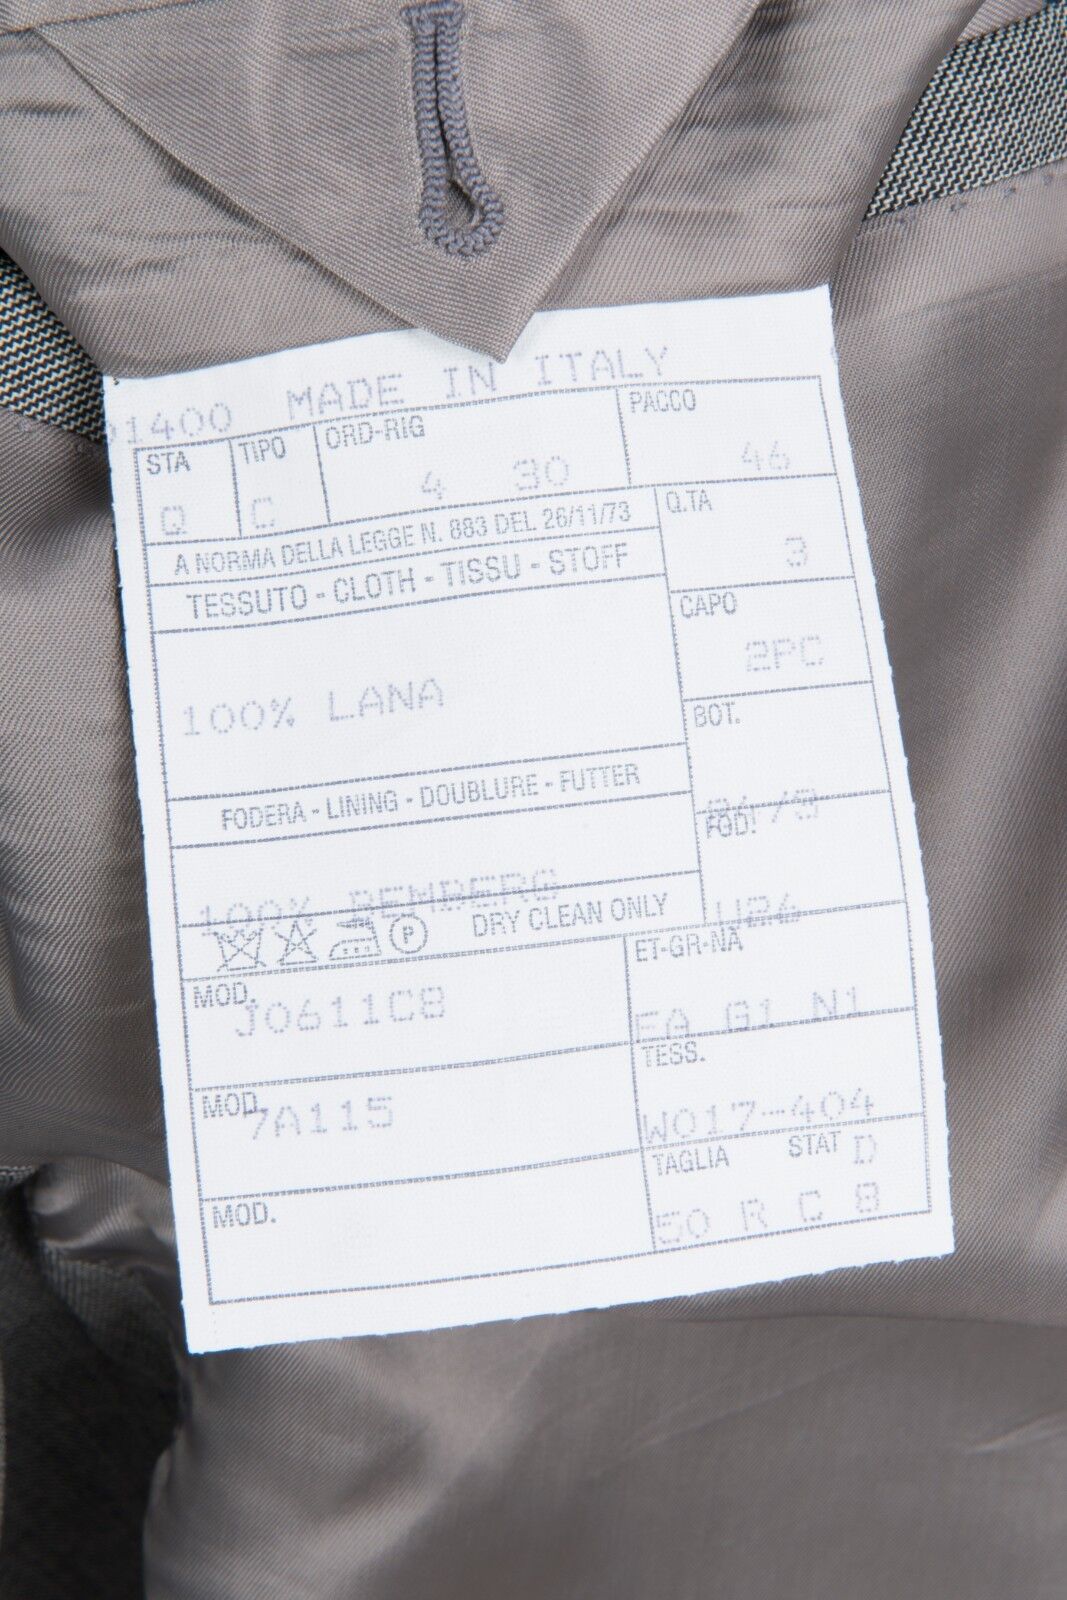 1400 MADE IN ITALY
STA TIPO ORD-RIG PACCO
Q C 4 30 46
A NORMA DELLA LEGGE N. 883 DEL 26/11/73 Q.TA
3
TESSUTO - CLOTH - TISSU - STOFF
CAPO
2PC
100% LANA
BOT.
FODERA - LINING - DOUBLURE - FUTTER
FOD.
100% BEMBERG
P DRY CLEAN ONLY
ET-GR-NA
MOD. J0611C8
G1 N1
TESS.
MOD. 7A115
W017-404
TAGLIA STAT D
MOD.
50 R C 8